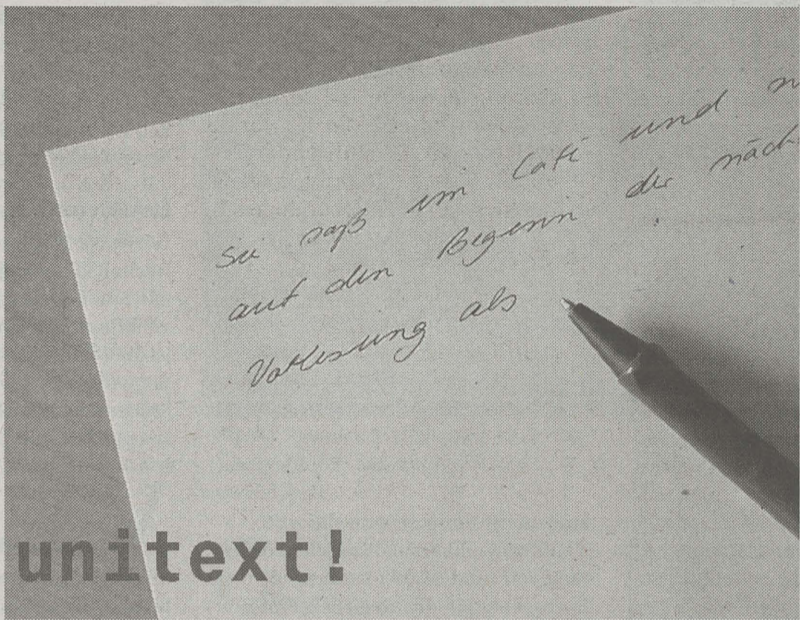 Sie saß im Café und
auf den Beginn der näch
Vorlesung als
unitext!